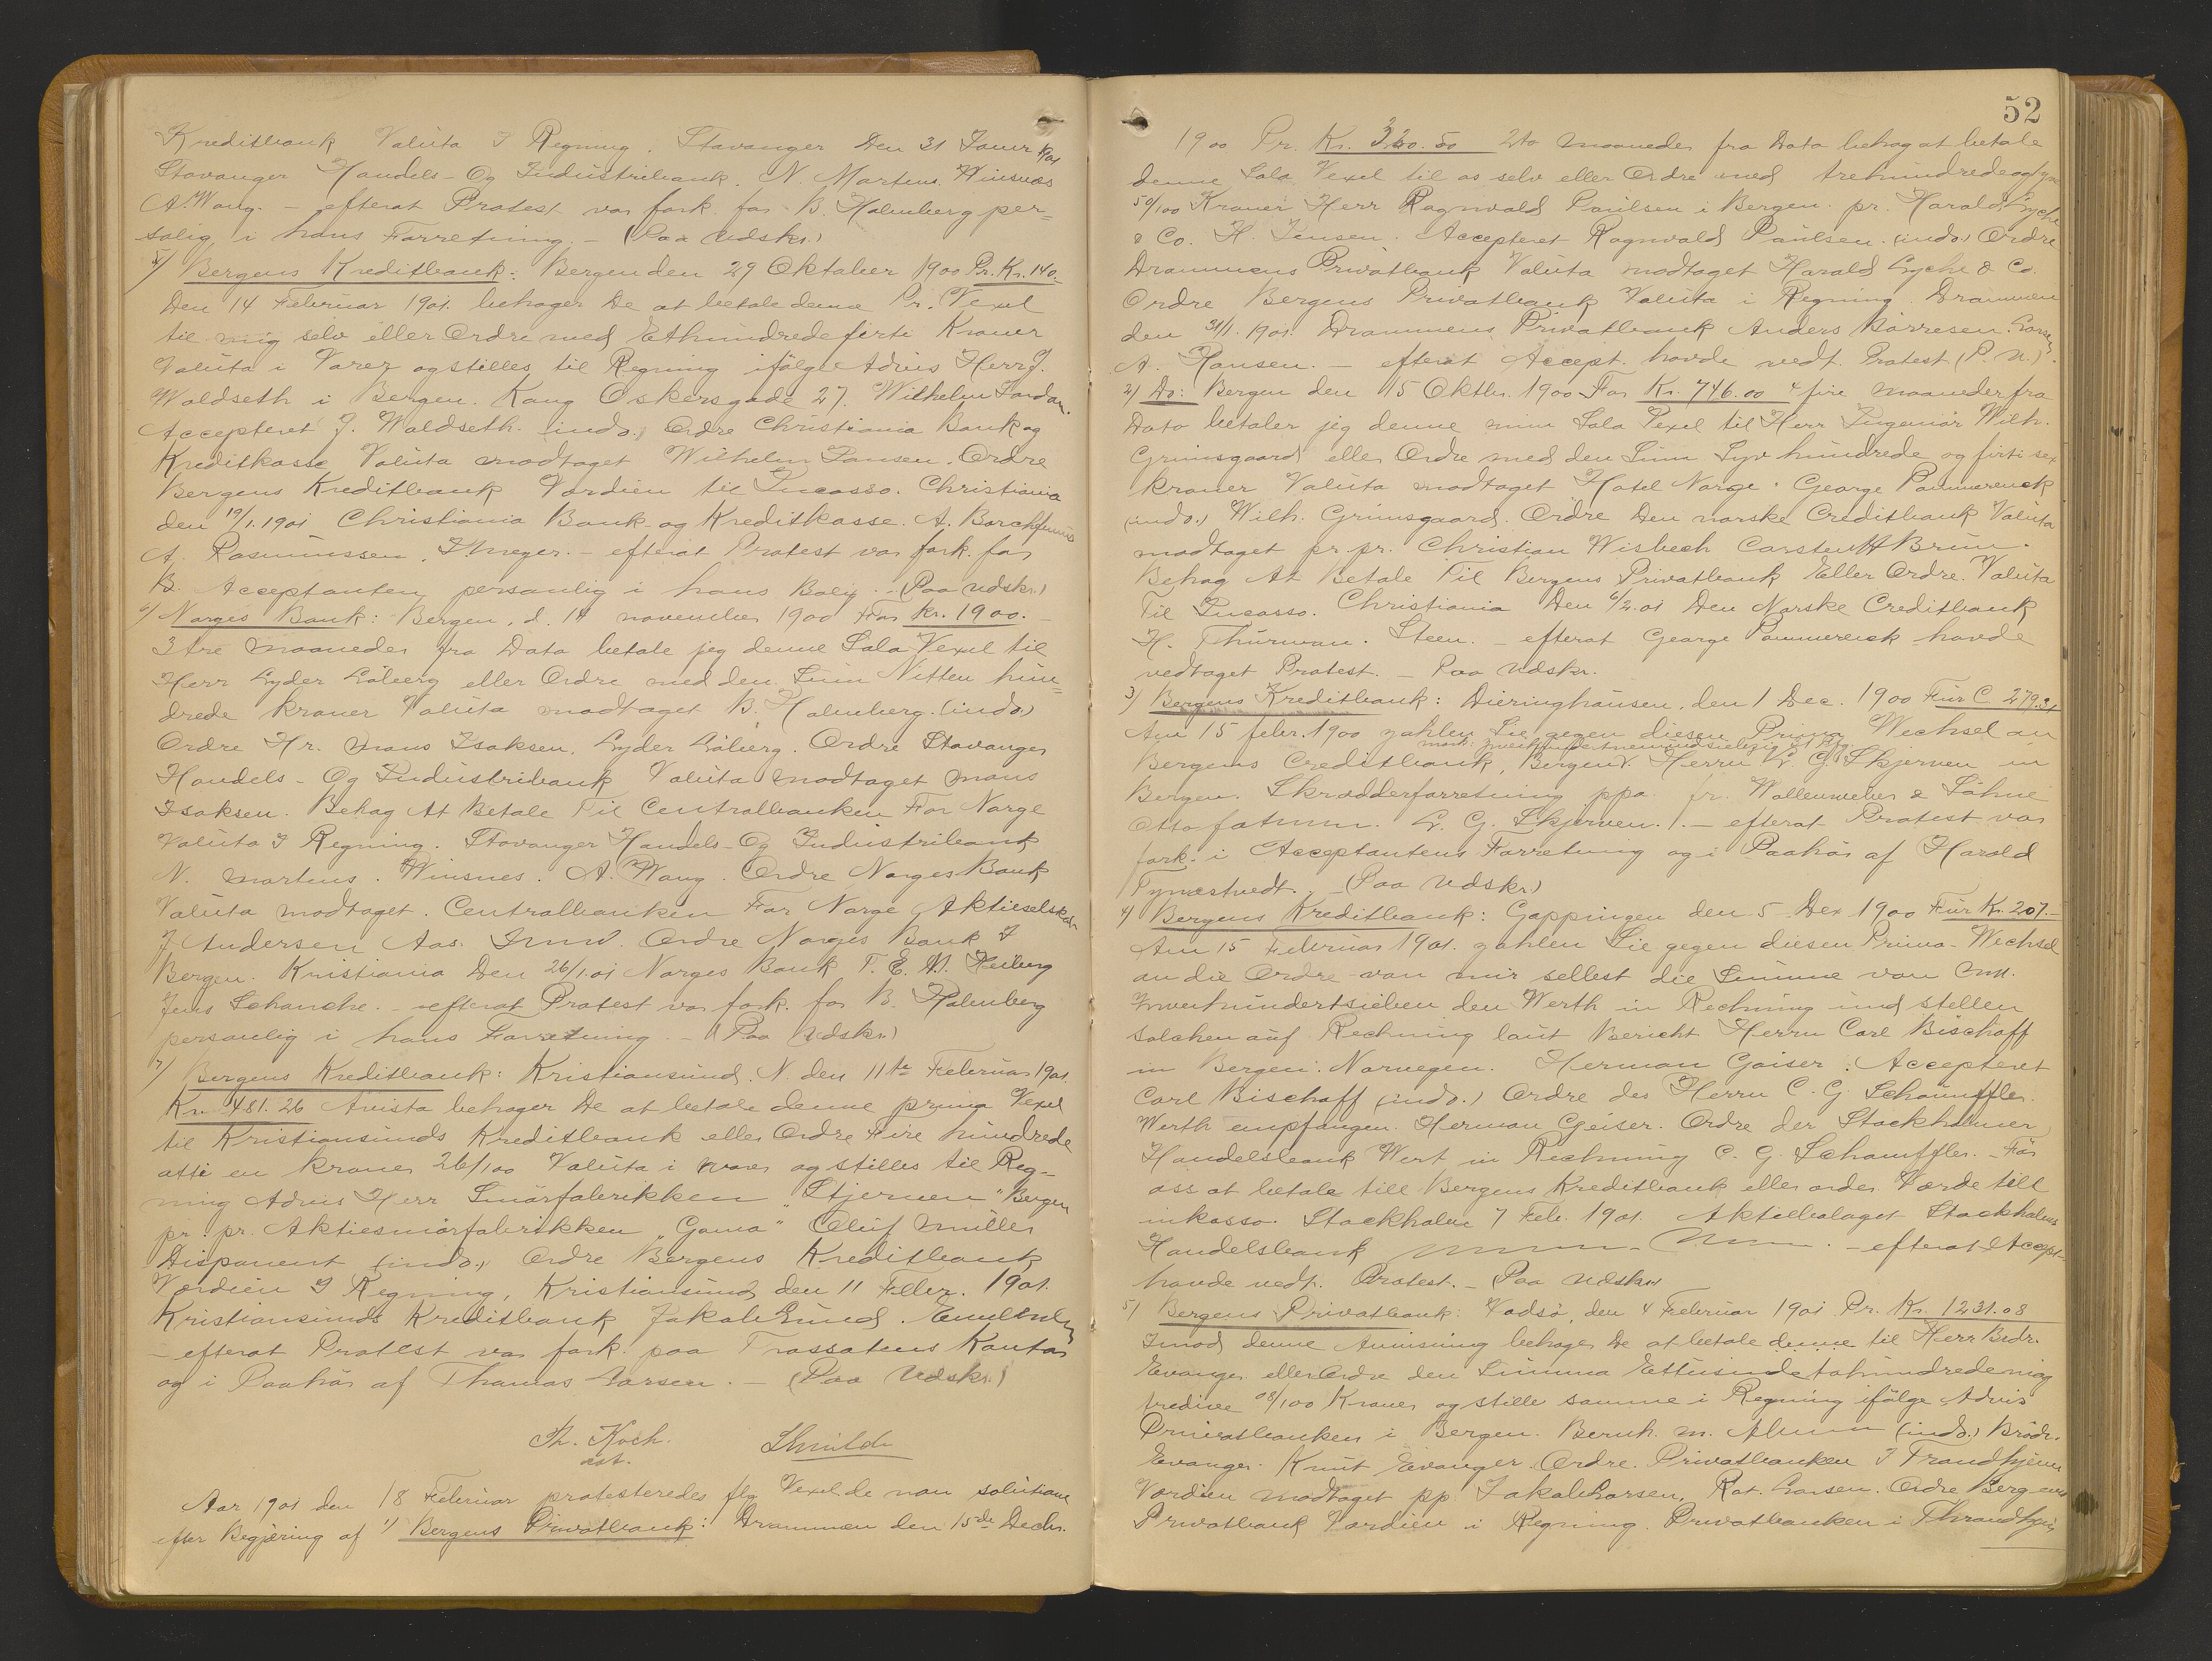 Kreditbank Valuta I Regning. Stavanger Den 31 Januar 1901
Stavanger Handels- Og Industribank. N. Martens. Winsnæs
A. Wang. – efterat Protest var fork. for B. Holmberg per=
solig i hans Forretning. – (Paa Udskr.)
5) Bergens Kreditbank: Bergen den 29 Oktober 1900 Pr. Kr. 140.
Den 14 Februar 1901. behager De at betale denne Pr. Vexel
til mig selv eller Ordre med Ethundredeførti Kroner
Valuta i Varer og stilles til Regning ifølge Advis Herr J.
Waldseth i Bergen. Kong Oskersgade 27. Wilhelm
Accepteret J. Waldseth. (indo.) Ordre Christiania Bank og
Kreditkasse Valuta modtaget Wilhelm Ordre
Bergens Kreditbank Værdien til Incasso. Christiania
den 19/1.1901 Christiania Bank- og Kreditkasse. A.
A. Rasmussen. – efterat Protest var fork. for
B. Acceptanten personlig i hans Bolig. – (Paa Udskr.)
6) Norges Bank: Bergen, d. 14 november 1900 For Kr. 1900. –
3 tre maaneder fra Dato betale jeg denne Sola Vexel til
Herr Lyder Løberg eller Ordre med den Sum Nitten hun=
drede kroner Valuta modtaget B. Holmberg. (indo.)
Ordre Hr. Mons Isaksen, Lyder Løberg. Ordre Stavanger
Handels- Og Industribank Valuta modtaget Mons
Isaksen. Behag At Betale Til Centralbanken For Norge
Valuta I Regning. Stavanger Handels- Og Industribank
N. Martens. Winsnes. A. Wang. Ordre Norges Bank
Valuta modtaget. Centralbanken For Norge Aktieselskab
J Andersen Aas. Ordre Norges Bank I
Bergen. Kristiania Den 26/1.01 Norges Bank T. E. M. Heiberg
Jens Schanche. – efterat Protest var fork. for B. Holmberg
personlig i hans Forretning. – (Paa Udskr.)
7) Bergens Kreditbank: Kristiansund. N. den 11te Februar 1901.
Kr. 481.26 Avista behager De at betale denne prima Vexel
til Kristiansunds Kreditbank eller Ordre Fire hundrede
otti en kroner 26/100 Valuta i varer og stilles til Reg-
ning Advis Herr Smørfabrikken "Stjernen" Bergen
pr. pr. Aktiesmørfabrikken "Goma" Oluf Müller
Disponent (indo.) Ordre Bergens Kreditbank
Værdien I Regning, Kristiansund den 11 Febr. 1901.
Kristiansunds Kreditbank Jakob Lund.
– efterat Protest var fork. paa Trassatens Kontor
og i Paahør af Thomas Larsen. – (Paa Udskr.)
Th. Koch.
ast.
Aar 1901 den 18 Februar protesteredes flg Vexel de non solutione
efter Begjæring af 1) Bergens Privatbank: Drammen den 15de Decbr.
52
1900 Pr. Kr. 320.50 2to maaneder fra Dato behag at betale
denne Sola Vexel til os selv eller Ordre med trehundredeogtyve
50/100 Kroner Herr Ragnvald Paulsen i Bergen. pr. Harald Lyche
& Co. H. Jensen. Accepteret Ragnvald Paulsen. (indo.) Ordre
Drammens Privatbank Valuta modtaget Harald Lyche & Co.
Ordre Bergens Privatbank Valuta i Regning. Drammen
den 31/1. 1901. Drammens Privatbank Anders Børresen. Larsen
A. Hansen. – efterat Accept. havde vedt. Protest (P. U.)
2) Do: Bergen den 15 Oktbr. 1900 For Kr. 746.00 4 fire maaneder fra
Dato betaler jeg denne min Sola Vexel til Herr Ingeniør Wilh.
Grimsgaard eller Ordre med den Sum Syv hundrede og førti sex
kroner Valuta modtaget Hotel Norge. George Pommerenck
(indo.) Wilh. Grimsgaard. Ordre Den norske Creditbank Valuta
modtaget pr. pr. Christian Wisbech Carsten H Bruun.
Behag At Betale Til Bergens Privatbank Eller Ordre. Valuta
Til Incasso. Christiania Den 6/2.01 Den Norske Creditbank
H. Thurman. Steen. – efterat George Pommerenck havde
vedtaget Protest. – Paa Udskr.
3) Bergens Kreditbank: Dieringhausen, den 1 Dec. 1900 Für C. 279.31
Am 15 febr. 1900 zahlen Sie gegen diesen Prima Wechsel an
Mark: zweihundertneunundsiebzig
Bergens Creditbank, Bergen. Herrn L. G. Skjerven in
Bergen. Skrædderforretning ppa. fr. Wollenweber & Söhne
Otto L. G. Skjerven. – efterat Protest var
fork. i Acceptantens Forretning og i Paahør af Harald
Tymestvedt. – (Paa Udskr.)
4) Bergens Kreditbank: Gøppingen den 5 Dez 1900 Für Kr. 207. –
Am 15 Februar 1901. zahlen Sie gegen diesen Prima-Wechsel
an die Ordre von mir selbst die Summe von
Zweihundertsieben den Werth in Rechnung und stellen
solchen auf Rechnung laut Bericht Herrn Carl Bischoff
in Bergen. Norwegen. Herman Gaiser. Accepteret
Carl Bischoff (indo.) Ordre des Herrn C. G. Schäuffler.
Werth empfangen. Herman Geiser. Ordre der Stockholmer
Handelsbank Wert in Rechnung C. G. Schäuffler. – För
oss at betale till Bergens Kreditbank eller order Værde till
inkasso. Stockholm 7 Feb. 1901. Aktiebolaget Stockholms
Handelsbank – efterat Accept.
havde vedt. Protest. – Paa Udskr.
5) Bergens Privatbank: Vadsø, den 4 Februar 1901 Pr. Kr. 1231.08
Imod denne Anvisning behager De at betale denne til Herr Brdr.
Evanger eller Ordre den Summa Ettusindetohundredeniog
tredive 08/100 Kroner og stille samme i Regning ifølge Advis
Privatbanken i Bergen. Bernh. M. (indo.) Brødr.
Evanger. Knut Evanger Ordre. Privatbanken I Trondhjem
Værdien modtaget pp. Jakob Larsen, Rat. Larsen. Ordre Bergens
Privatbank Værdien i Regning. Privatbanken i Throndhjem